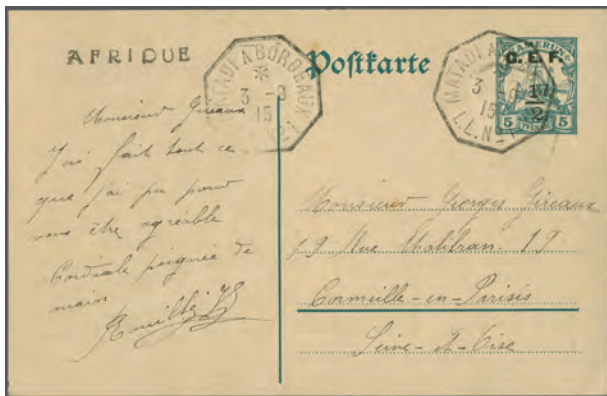 AFRIQUE
Postkarte
MATADI A BORDEAUX
3 -9
15
MATADI A
3 -9
15
L.L.N
KAMERUN
C.E.F.
1/2
5
5
Monsieur Gireaux
J'ai fait tout ce
que j'ai pu pour
vous être agréable
Cordiale poignée de
main
Monsieur Georges Gireaux
19 Rue Malibran. 19
Cormeille-en-Parisis
Seine-et-Oise